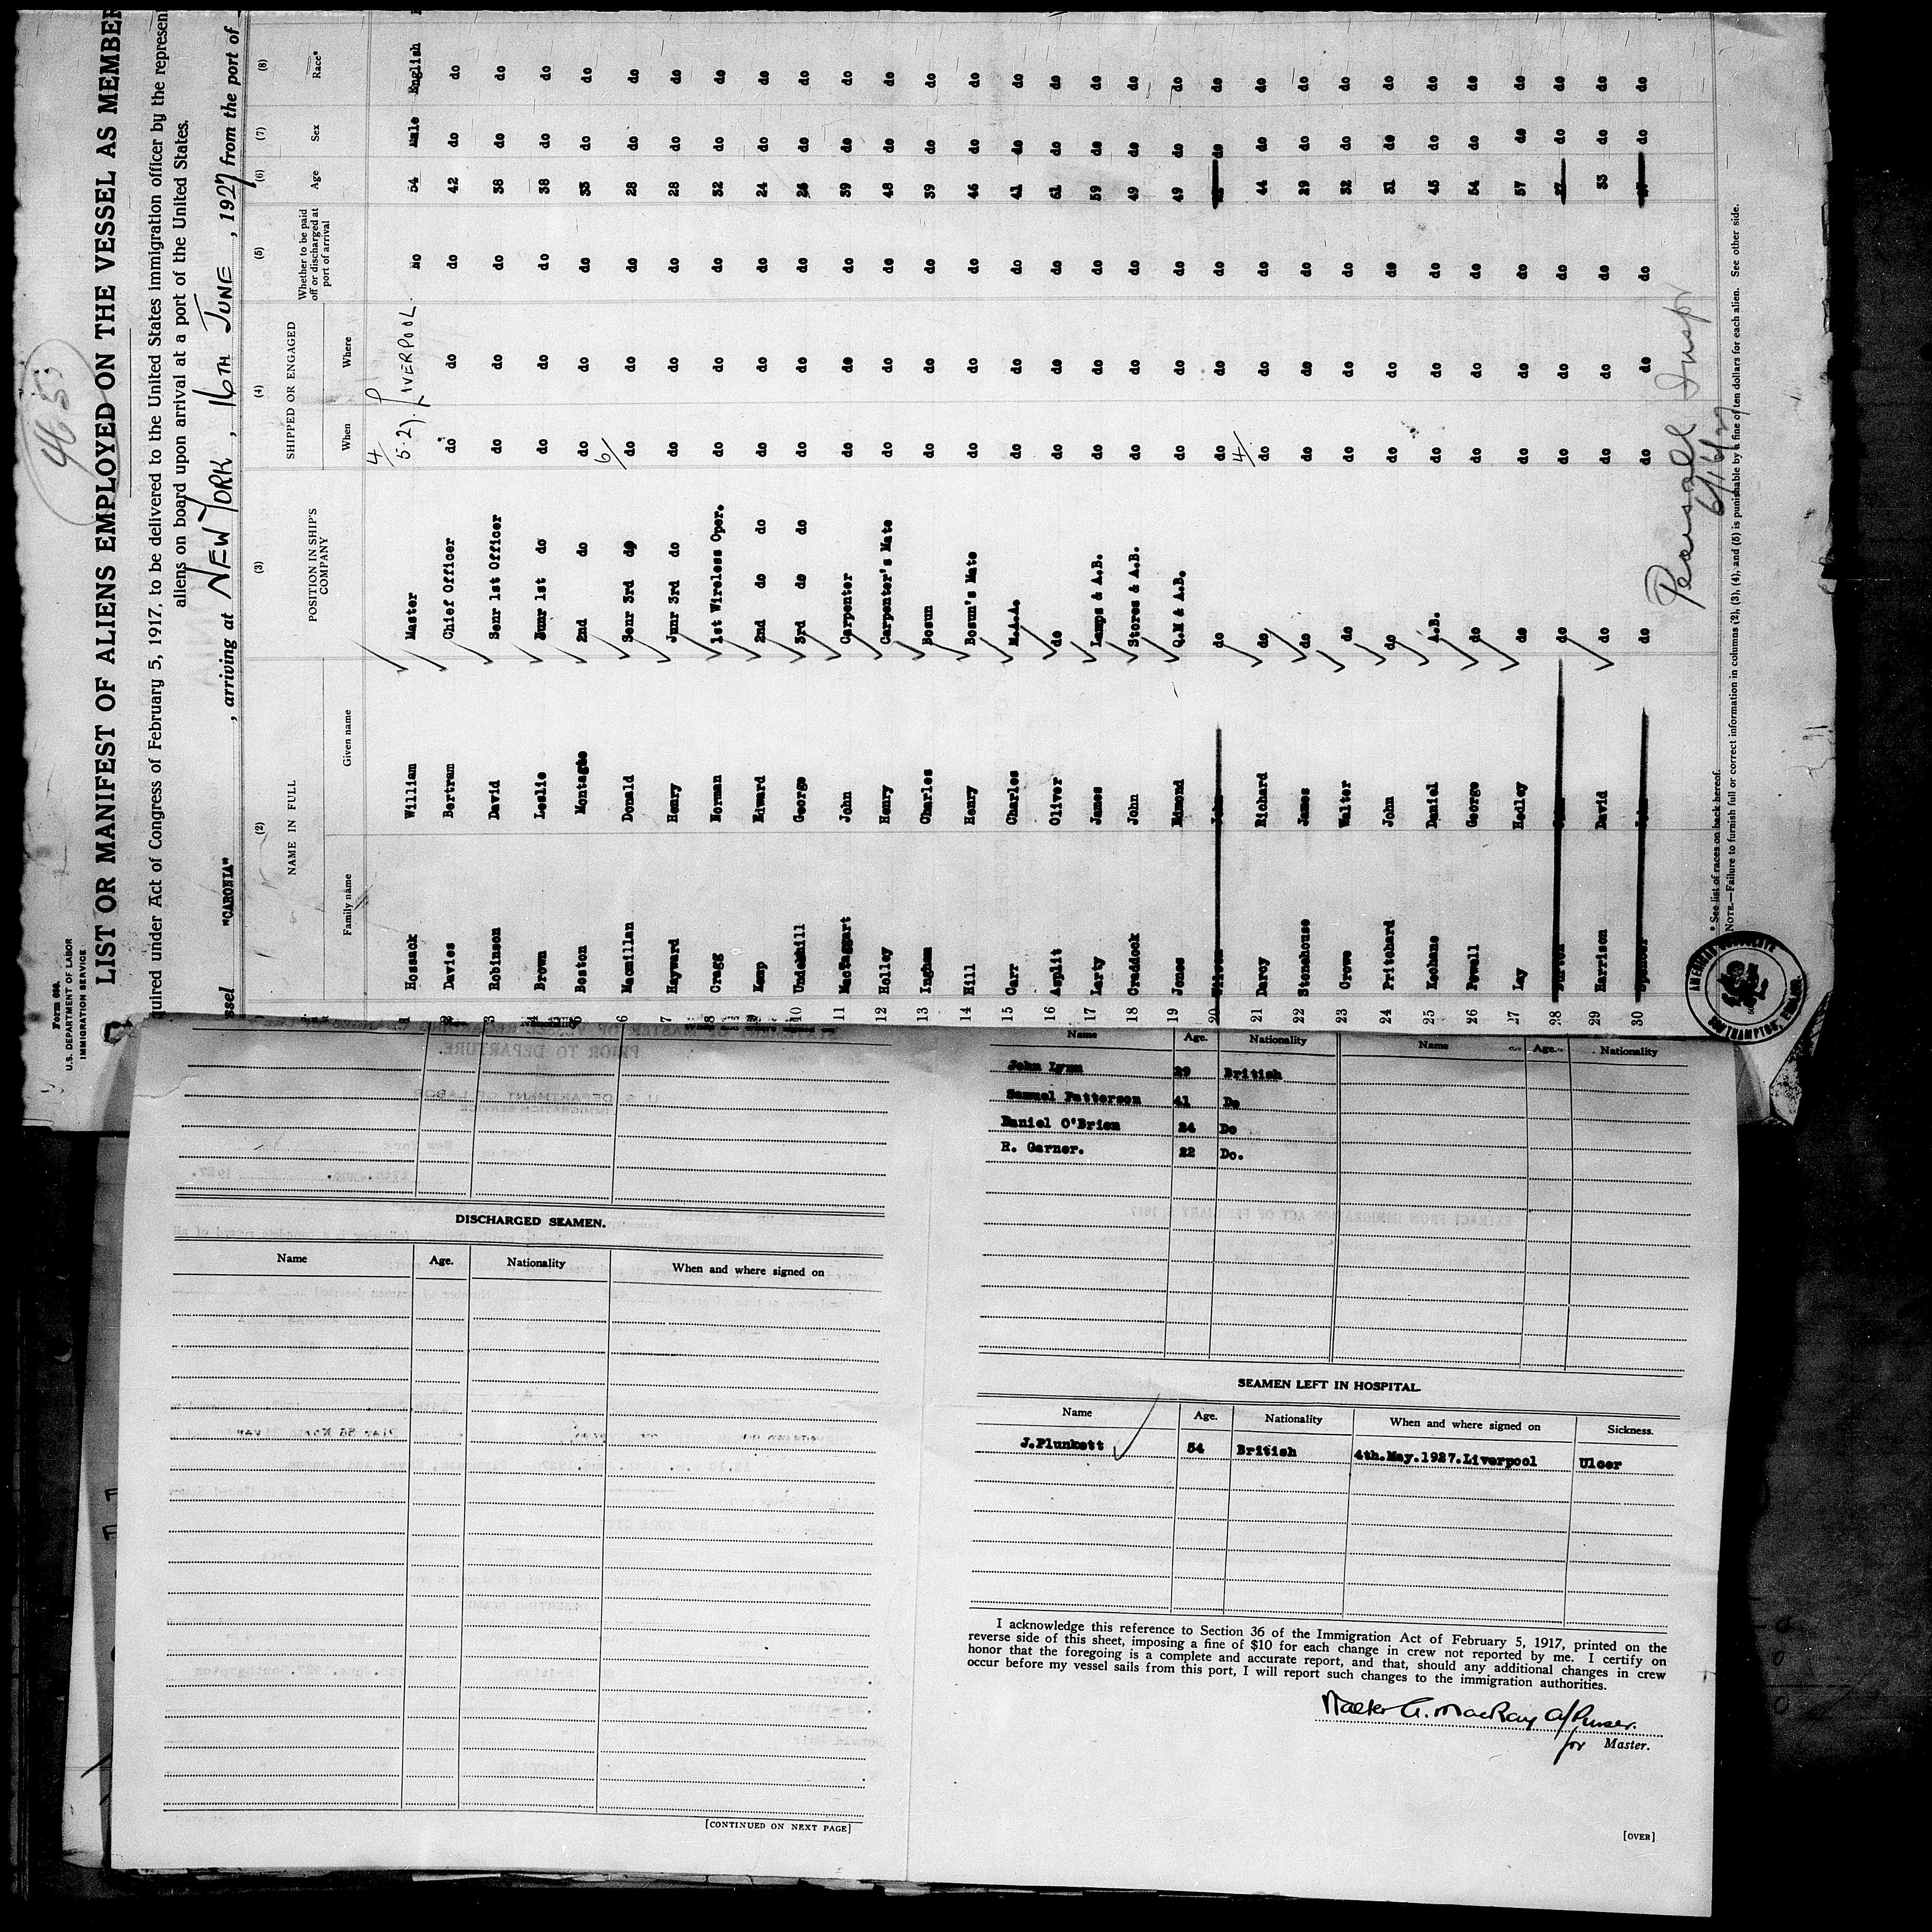 4655
Form 680
U.S. DEPARTMENT OF LABOR
IMMIGRATION SERVICE
LIST OR MANIFEST OF ALIENS EMPLOYED ON THE VESSEL AS MEMBER
quired under Act of Congress of February 5, 1917, to be delivered to the United States immigration officer by the represen
aliens on board upon arrival at a port of the United States.
ssel "CARONIA" , arriving at NEW YORK , 16TH JUNE , 1927 from the port of
(2) (3) (4) (5) (6) (7) (8)
NAME IN FULL POSITION IN SHIP'S COMPANY SHIPPED OR ENGAGED Whether to be paid off or discharged at port of arrival Age Sex Race*
Family name Given name When Where
1 Hossack William Master 4/5.27. LIVERPOOL. No 54 Male English
2 Davies Bertram Chief Officer do do do 42 do do
3 Robinson David Senr 1st Officer do do do 38 do do
4 Brown Leslie Junr 1st do do do do 38 do do
5 Boston Montague 2nd do do do do 33 do do
6 Macmillan Donald Senr 3rd do 6/ do do do 28 do do
7 Hayward Henry Junr 3rd do do do do 28 do do
8 Cragg Norman 1st Wireless Oper. do do do 32 do do
9 Kemp Edward 2nd do do do do do 24 do do
10 Underhill George 3rd do do do do do 26 do do
11 MacTaggart John Carpenter do do do 39 do do
12 Holley Henry Carpenter's Mate do do do 48 do do
13 Ingham Charles Bosun do do do 39 do do
14 Hill Henry Bosun's Mate do do do 46 do do
15 Carr Charles M.A.A. do do do 41 do do
16 Asplit Oliver do do do do 61 do do
17 Larty James Lamps & A.B. do do do 59 do do
18 Craddock John Stores & A.B. do do do 49 do do
19 Jones Edmond Q.M & A.B. do do do 49 do do
20 do do do do do do
21 Darcy Richard do 4/ do do do 44 do do
22 Stonehouse James do do do do 29 do do
23 Crowe Walter do do do do 32 do do
24 Pritchard John do do do do 31 do do
25 Keohane Daniel A.B. do do do 45 do do
26 Powell George do do do do 54 do do
27 Lay Hedley do do do do 57 do do
28 do do do do do do
29 Harrison David do do do do 33 do do
30 Spencer John do do do do do do
* See list of races on back hereof.
NOTE.—Failure to furnish full or correct information in columns (2), (3), (4), and (5) is punishable by a fine of ten dollars for each alien. See other side.
Pearsall Inspr
6/16/27
AMERICAN CONSULATE
SOUTHAMPTON, ENGLAND.
DISCHARGED SEAMEN.
Name Age. Nationality When and where signed on
[CONTINUED ON NEXT PAGE]
Name Age. Nationality Name Age. Nationality
John Lynn 29 British
Samuel Patterson 41 Do
Daniel O'Brien 24 Do
R. Garner. 22 Do.
SEAMEN LEFT IN HOSPITAL.
Name Age. Nationality When and where signed on Sickness.
J.Plunkett 54 British 4th.May.1927.Liverpool Ulcer
I acknowledge this reference to Section 36 of the Immigration Act of February 5, 1917, printed on the
reverse side of this sheet, imposing a fine of $10 for each change in crew not reported by me. I certify on
honor that the foregoing is a complete and accurate report, and that, should any additional changes in crew
occur before my vessel sails from this port, I will report such changes to the immigration authorities.
Walter G. MacKay a/Purser.
for Master.
[OVER]